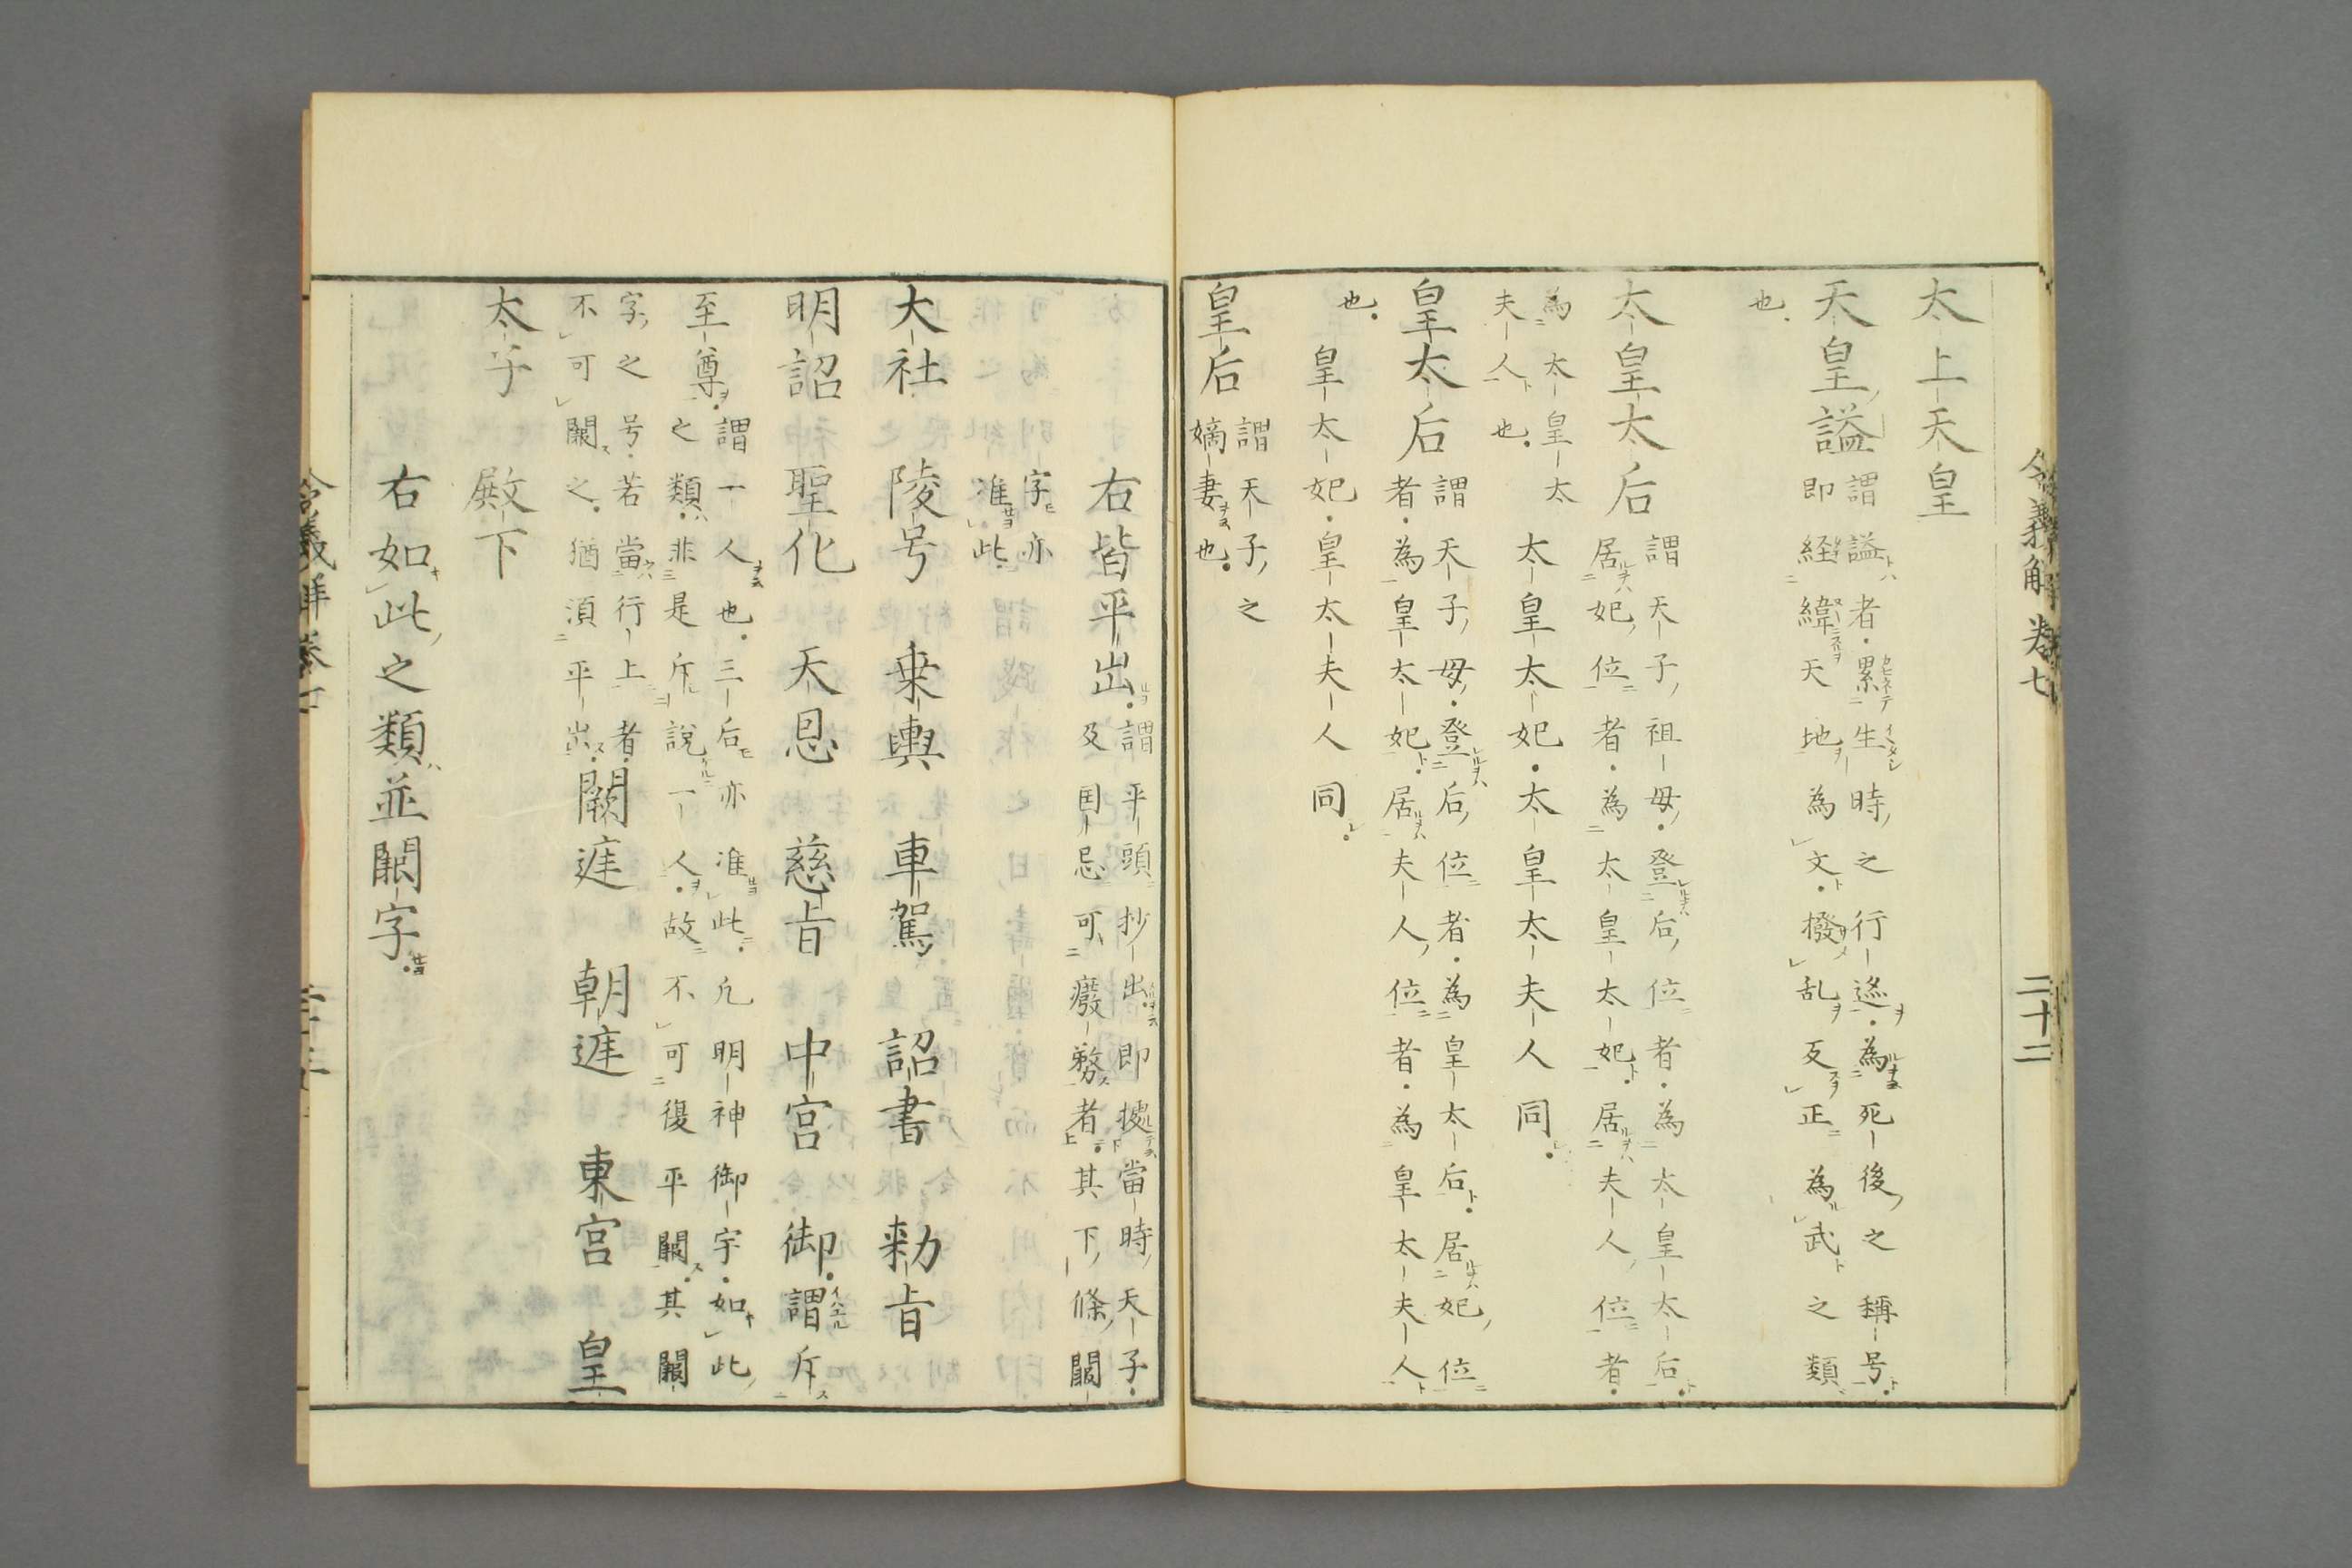 令義解卷七
二十二
太上天皇
天皇謚
謂謚者累生時之行迹為死後之稱号
即経緯天地為文撥乱反正為武之類
也
太皇太后
謂天子祖母登后位者為太皇太后
居妃位者為太皇太妃居夫人位者
為太皇太
夫人也
太皇太妃太皇太夫人同
皇太后
謂天子母登后位者為皇太后居妃位
者為皇太妃居夫人位者為皇太夫人
也
皇太妃皇太夫人同
皇后
謂天子之
嫡妻也
右皆平出
謂平頭抄出即據當時天子
及国忌可廢務者其下條闕
字亦
准此
大社 陵号 乗輿 車駕 詔書 勅旨
明詔 聖化 天恩 慈旨 中宮 御謂斥
至尊
謂一人也三后亦准此凢明神御宇如此
之類非是斥說一人故不可復平闕其闕
字之号若當行上者
不可闕之猶須平出
闕𨓍 朝𨓍 東宮 皇
太子
殿下
右如此之類並闕字